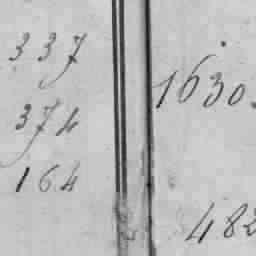 337
374
164
1630.
482